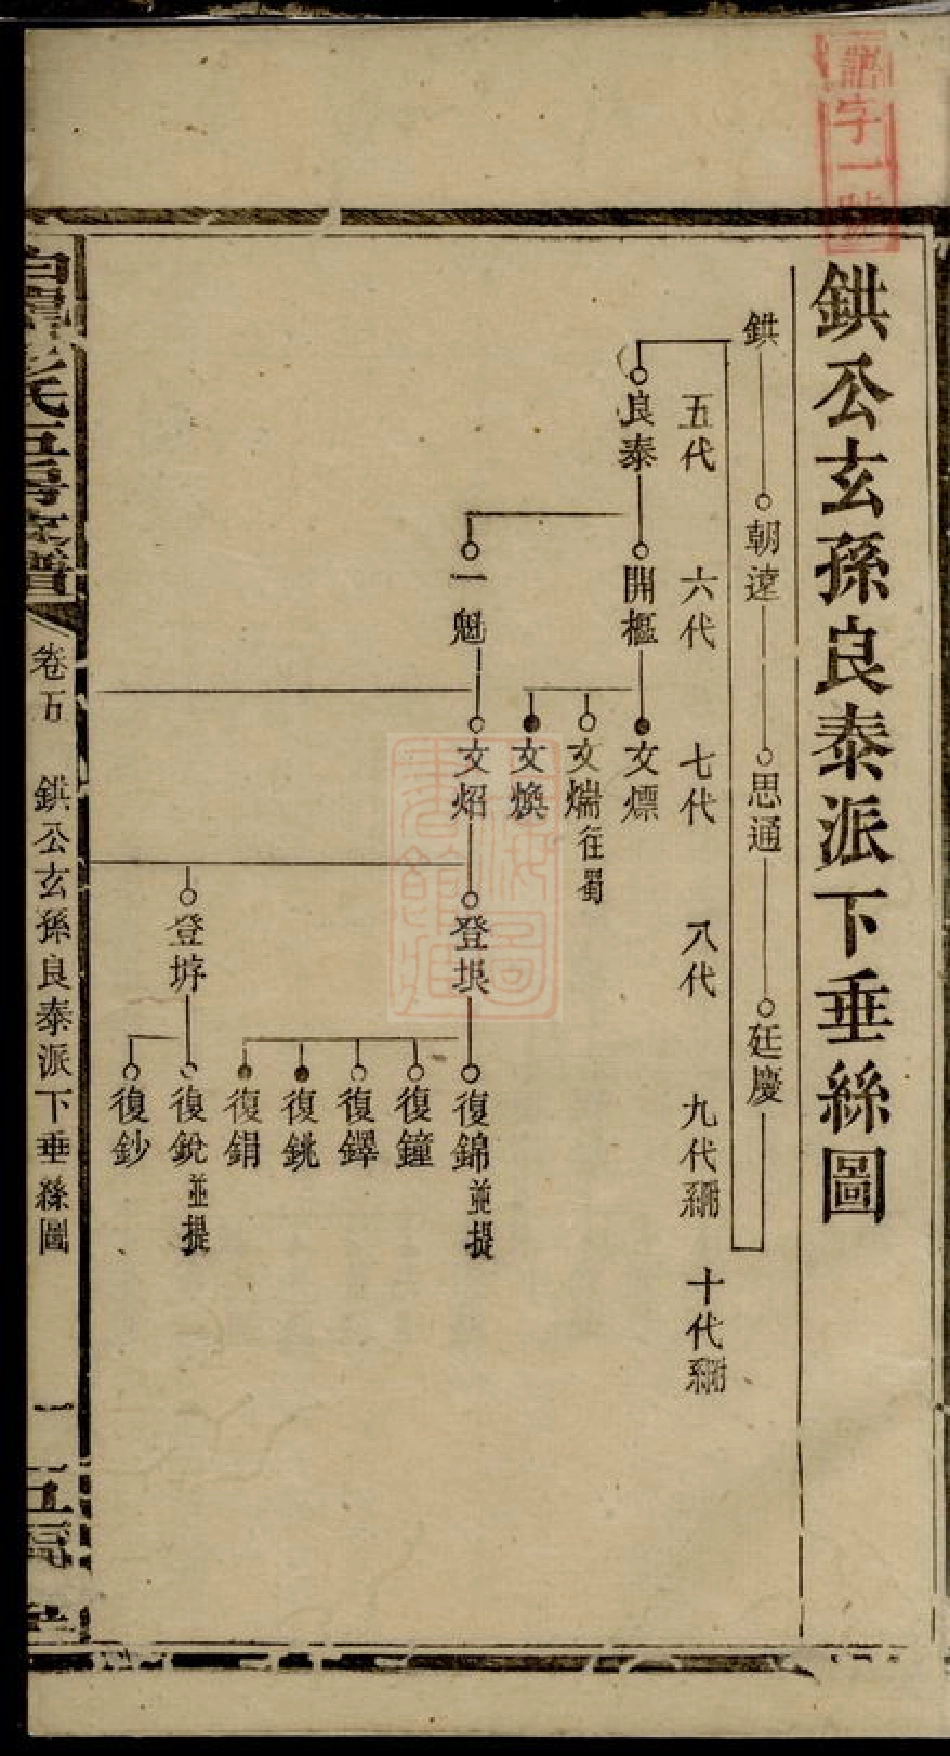 鉷公玄孫良泰派下垂絲圖
鉷
朝遠
思通
廷慶
五代
六代
七代
八代
九代
十代
良泰
開樞
文熛
文煓往蜀
文煥
一魁
文炤
登垠
復錦並提
復鐘
復鐸
復銚
復鋗
登垿
復鋭並提
復鈔
氏五房
卷五
鉷公玄孫良泰派下垂絲圖
一
字一號